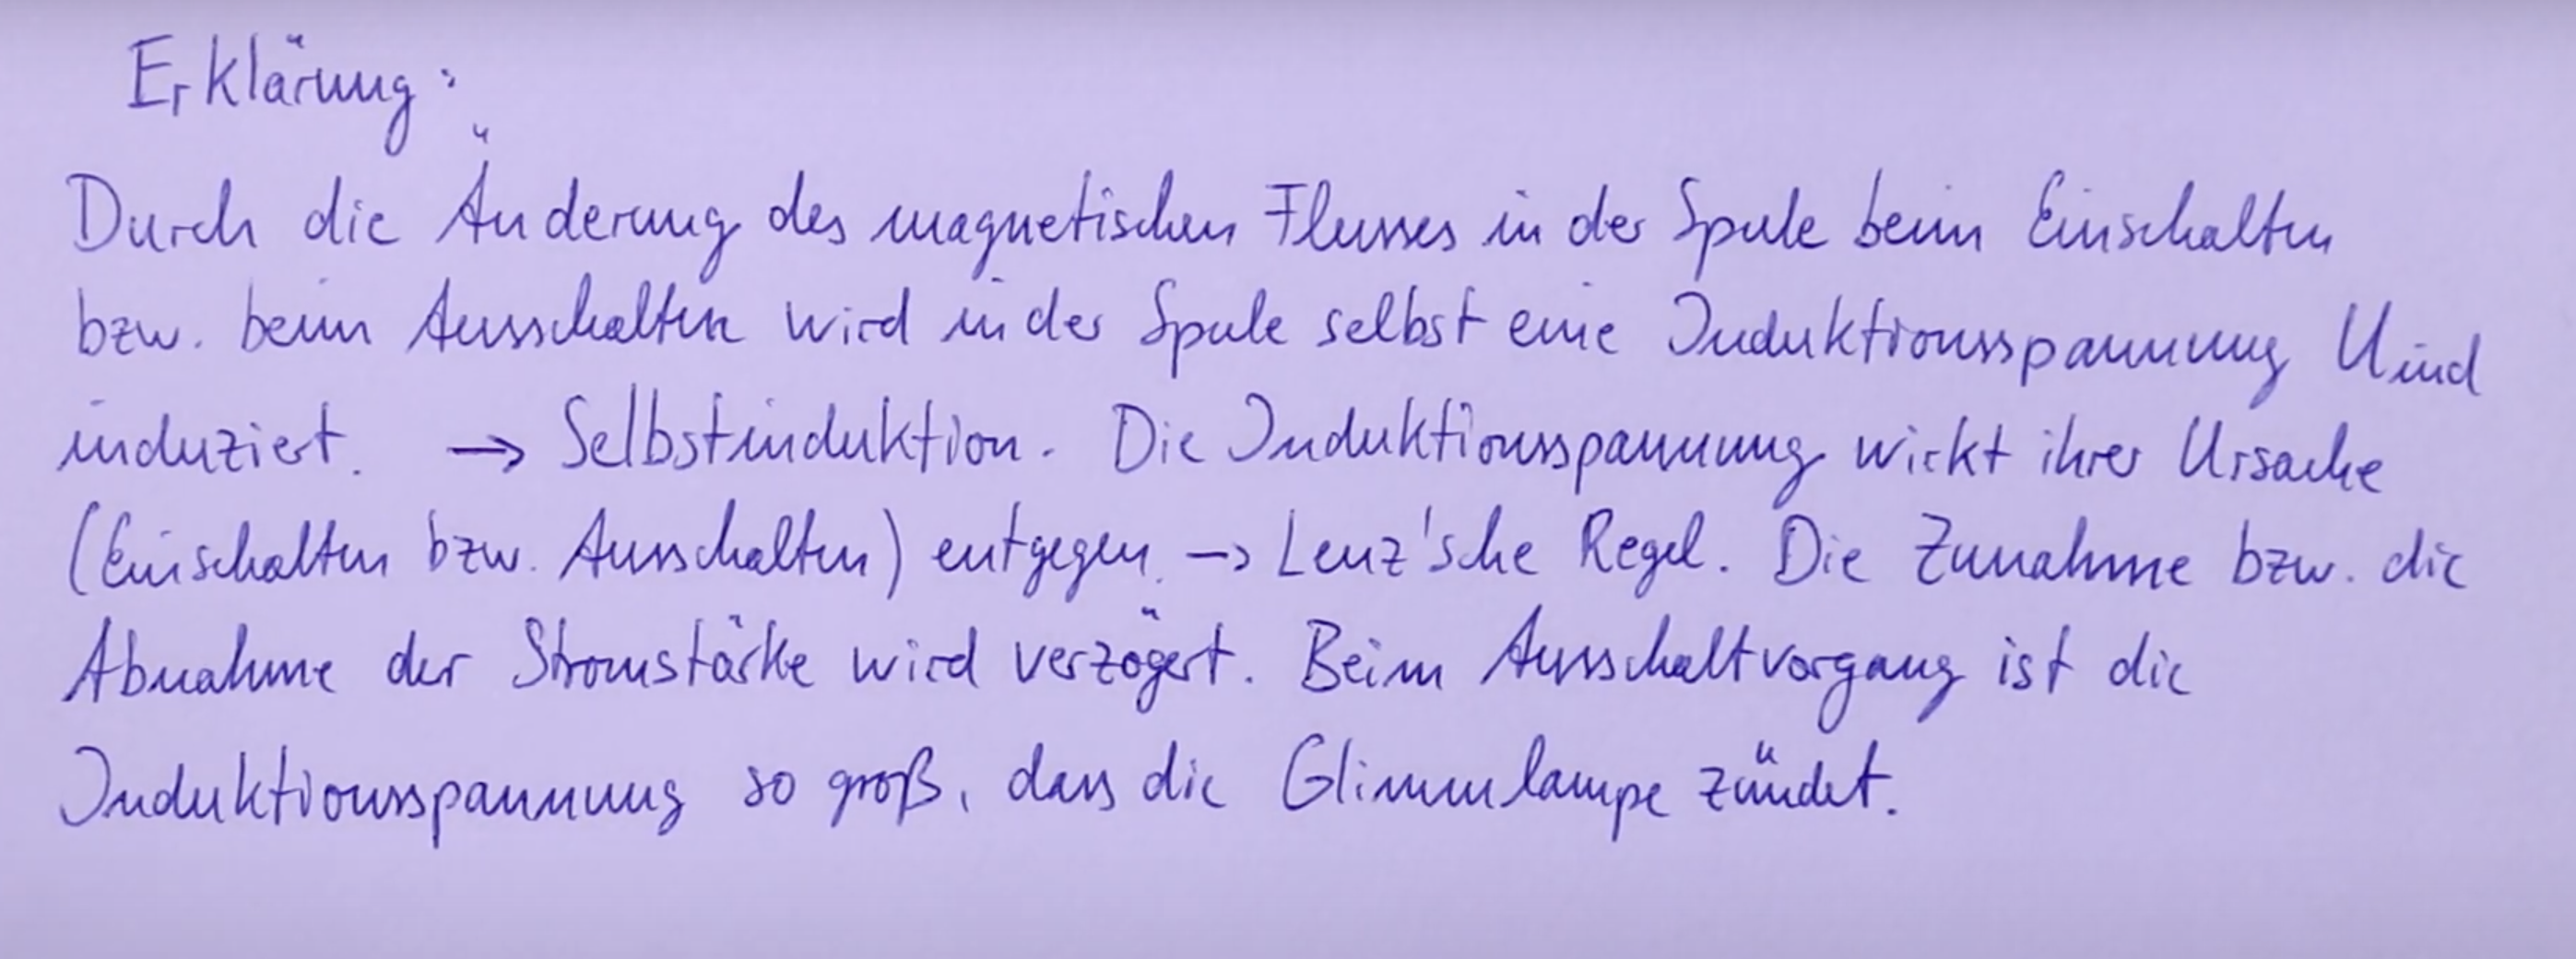 Erklärung:
Durch die Änderung des magnetischen Flusses in der Spule beim Einschalten
bzw. beim Ausschalten wird in der Spule selbst eine Induktionsspannung Uind
induziert. → Selbstinduktion. Die Induktionsspannung wirkt ihrer Ursache
(Einschalten bzw. Ausschalten) entgegen. → Lenz'sche Regel. Die Zunahme bzw. die
Abnahme der Stromstärke wird verzögert. Beim Ausschaltvorgang ist die
Induktionsspannung so groß, dass die Glimmlampe zündet.